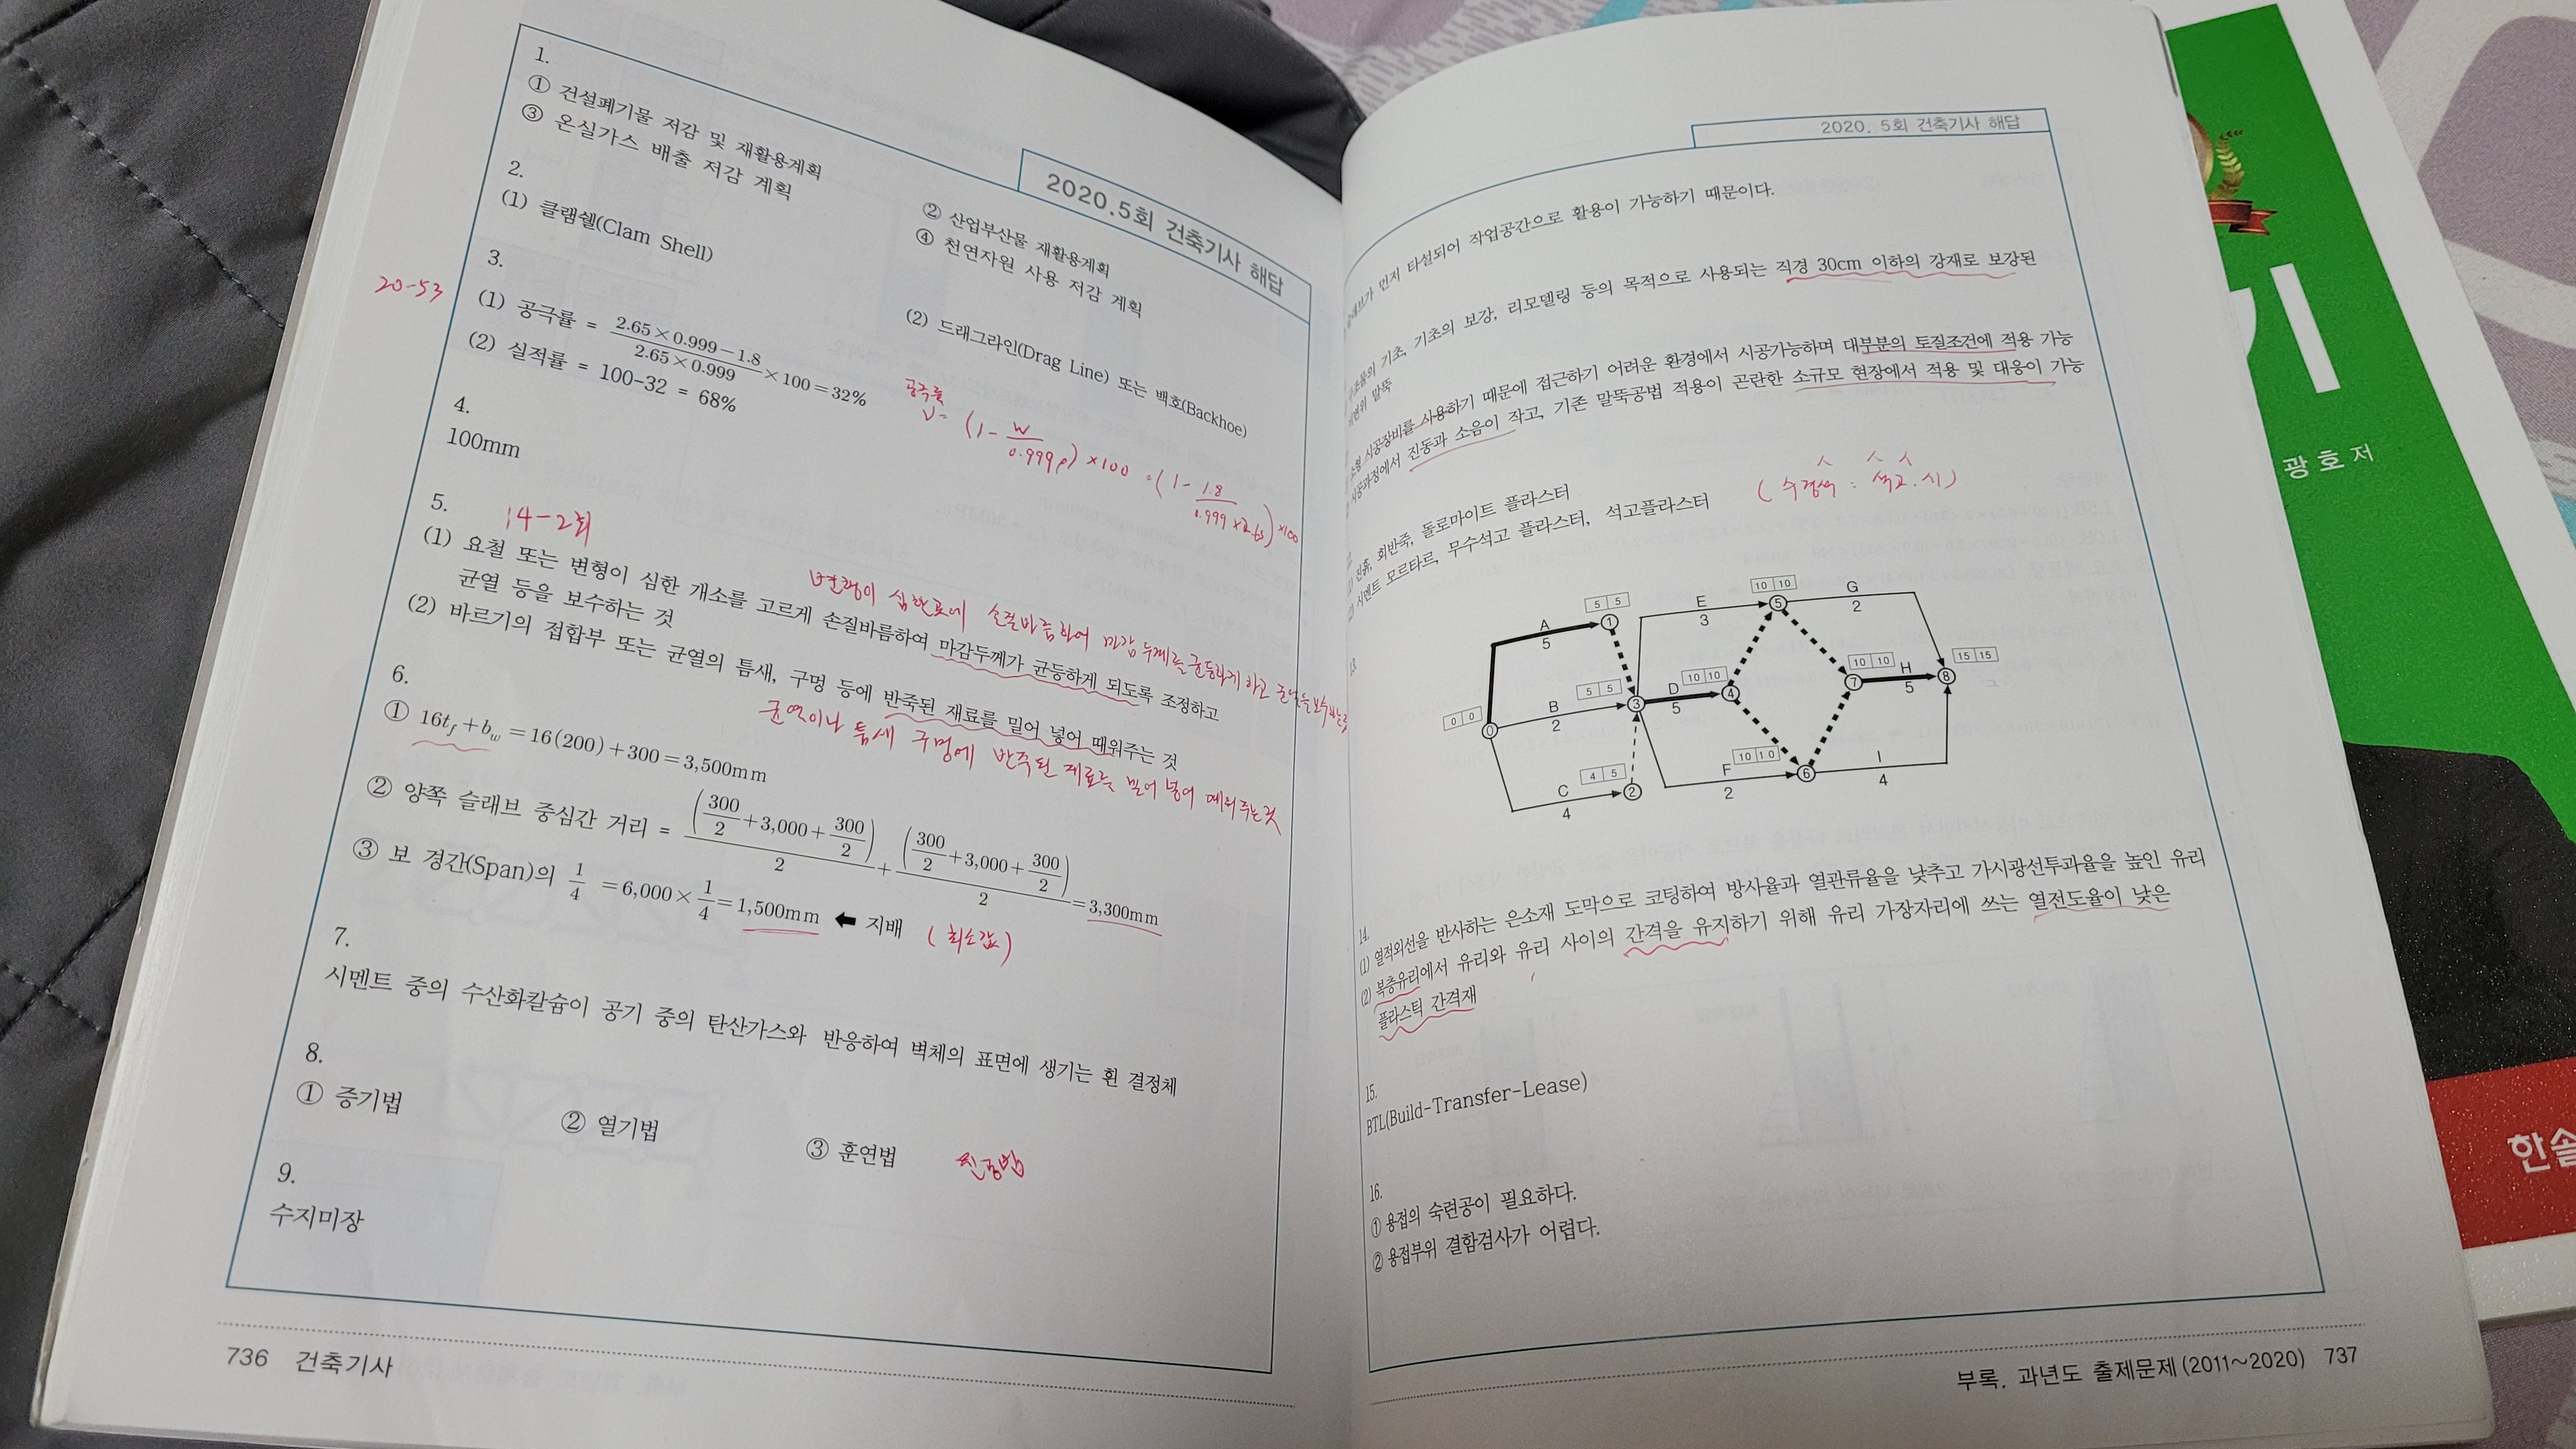 2020.5회 건축기사 해답
1.
① 건설폐기물 저감 및 재활용계획
② 산업부산물 재활용계획
③ 온실가스 배출 저감 계획
④ 천연자원 사용 저감 계획
2.
(1) 클램쉘(Clam Shell)
(2) 드래그라인(Drag Line) 또는 백호(Backhoe)
20-53
3.
(1) 공극률 = 2.65×0.999−1.8 / 2.65×0.999 ×100=32%
(2) 실적률 = 100-32 = 68%
공극률
V= (1 - w / 0.999ρ) ×100 = (1 - 1.8 / 0.999×2.65) ×100
4.
100mm
5.
14-2회
(1) 요철 또는 변형이 심한 개소를 고르게 손질바름하여 마감두께가 균등하게 되도록 조정하고
균열 등을 보수하는 것
변형이 심한 손질바름하여 마감두께를 균등하게 하고 균열을 보수하는 것
(2) 바르기의 접합부 또는 균열의 틈새, 구멍 등에 반죽된 재료를 밀어 넣어 때워주는 것
균열이나 틈새 구멍에 반죽된 재료를 밀어 넣어 때워주는 것
6.
① 16tf+bw=16(200)+300=3,500mm
② 양쪽 슬래브 중심간 거리 = (300/2+3,000+300/2)/2 + (300/2+3,000+300/2)/2 =3,300mm
③ 보 경간(Span)의 1/4 =6,000×1/4=1,500mm ⬅ 지배 (최소값)
7.
시멘트 중의 수산화칼슘이 공기 중의 탄산가스와 반응하여 벽체의 표면에 생기는 흰 결정체
8.
① 증기법 ② 열기법 ③ 훈연법 진공법
9.
수지미장
736 건축기사
2020. 5회 건축기사 해답
먼저 타설되어 작업공간으로 활용이 가능하기 때문이다.
기초, 기초의 보강, 리모델링 등의 목적으로 사용되는 직경 30cm 이하의 강재로 보강된
말뚝
시공장비를 사용하기 때문에 접근하기 어려운 환경에서 시공가능하며 대부분의 토질조건에 적용 가능
시공과정에서 진동과 소음이 작고, 기존 말뚝공법 적용이 곤란한 소규모 현장에서 적용 및 대응이 가능
진흙, 회반죽, 돌로마이트 플라스터
시멘트 모르타르, 무수석고 플라스터, 석고플라스터
(수경성 : 석고.시)
13.
0 0
0
A
5
5 5
1
B
2
C
4
4 5
2
5 5
3
D
5
10 10
4
E
3
10 10
5
F
2
10 10
6
G
2
10 10
7
H
5
I
4
15 15
8
14.
(1) 열적외선을 반사하는 은소재 도막으로 코팅하여 방사율과 열관류율을 낮추고 가시광선투과율을 높인 유리
(2) 복층유리에서 유리와 유리 사이의 간격을 유지하기 위해 유리 가장자리에 쓰는 열전도율이 낮은
플라스틱 간격재
15.
BTL(Build-Transfer-Lease)
16.
① 용접의 숙련공이 필요하다.
② 용접부위 결함검사가 어렵다.
부록. 과년도 출제문제(2011~2020) 737
광호 저
한솔